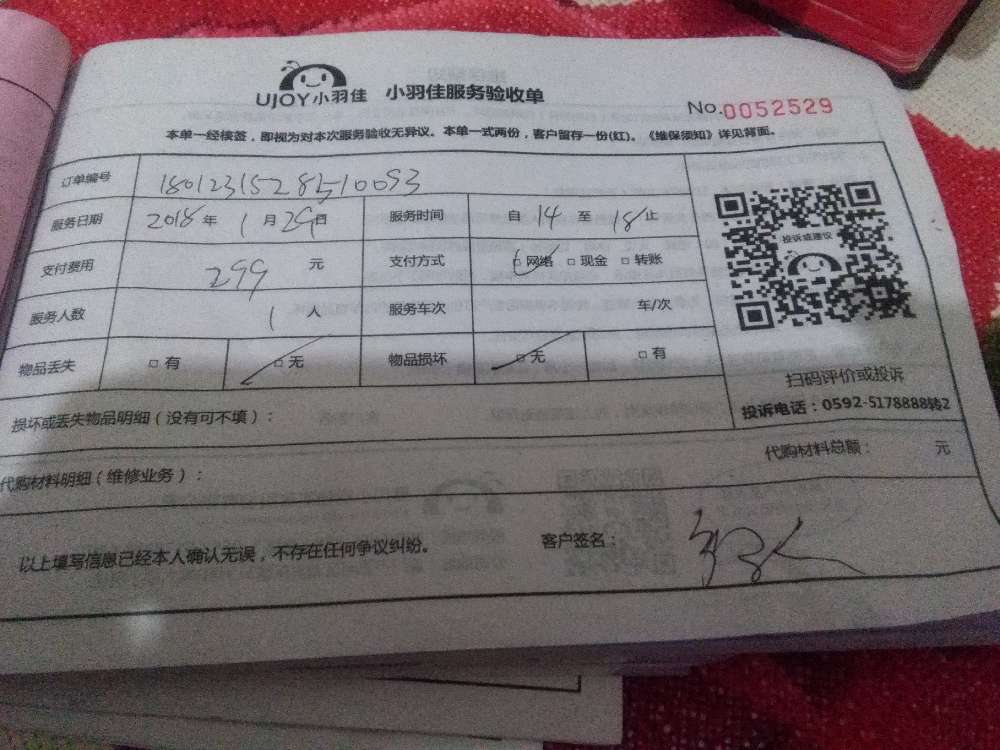 UJOY小羽佳 小羽佳服务验收单
No.0052529
本单一经核签，即视为对本次服务验收无异议。本单一式两份，客户留存一份(红)。《维保须知》详见背面。
订单编号
服务日期 2018年 1月29日 服务时间 自 14 至 18 止
支付费用 299 元 支付方式 □网络 □现金 □转账
服务人数 1 人 服务车次 车/次
物品丢失 □有 □无 物品损坏 □无 □有
投诉或建议
扫码评价或投诉
投诉电话：0592-5178888转2
损坏或丢失物品明细（没有可不填）：
代购材料明细（维修业务）： 代购材料总额： 元
以上填写信息已经本人确认无误，不存在任何争议纠纷。 客户签名：